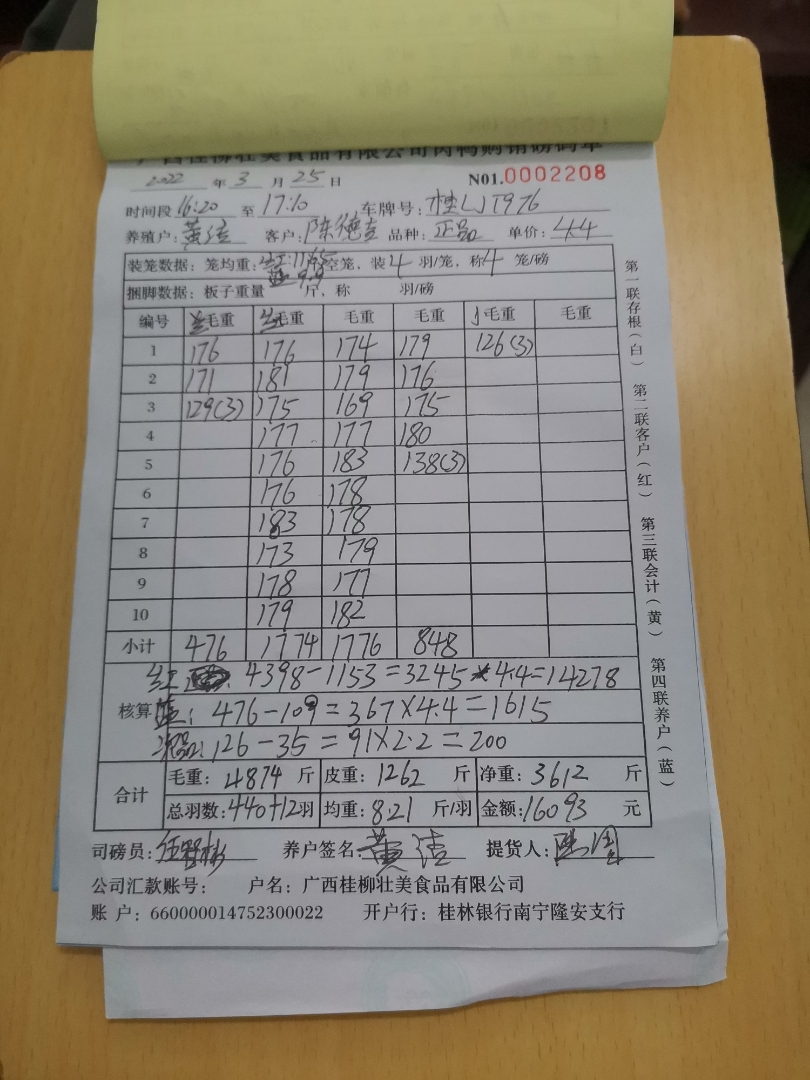 广西桂柳壮美食品有限公司肉鸭购销磅码单
2022 年 3 月 25 日 N01.0002208
时间段 16:20 至 17:10 车牌号: 桂LJT976
养殖户: 黄洁 客户: 陈德 品种: 正品 单价: 4.4
装笼数据: 笼均重: 红: 蓝: 9.9 空笼, 装 4 羽/笼, 称 4 笼/磅
捆脚数据: 板子重量 斤, 称 羽/磅
编号 毛重 红毛重 毛重 毛重 毛重 毛重
1 176 176 174 179 126(3)
2 171 181 179 176
3 129(3) 175 169 175
4 177 177 180
5 176 183 138(3)
6 176 178
7 183 178
8 173 179
9 178 177
10 179 182
小计 476 1774 1776 848
红 : 4398-1153=3245*4.4=14278
核算 蓝: 476-109=367×4.4=1615
次品: 126-35=91×2.2=200
合计 毛重: 4874 斤 皮重: 1262 斤 净重: 3612 斤
总羽数: 440+12羽 均重: 8.21 斤/羽 金额: 16093 元
司磅员: 养户签名: 黄洁 提货人:
公司汇款账号: 户名: 广西桂柳壮美食品有限公司
账 户: 660000014752300022 开户行: 桂林银行南宁隆安支行
第一联存根(白) 第二联客户(红) 第三联会计(黄) 第四联养户(蓝)